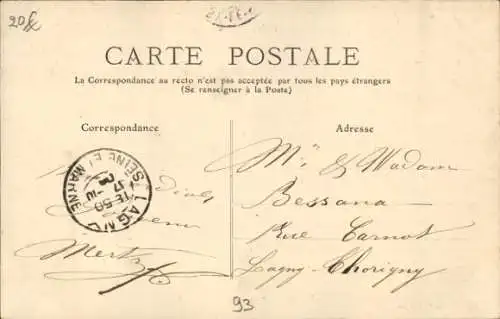 20f
CARTE POSTALE
La Correspondance au recto n'est pas acceptée par tous les pays étrangers
(Se renseigner à la Poste)
Correspondance
Adresse
LAGNY
SEINE ET MARNE
Mr & Madam
Bessana
Rue Carnot
Lagny-Thorigny
93